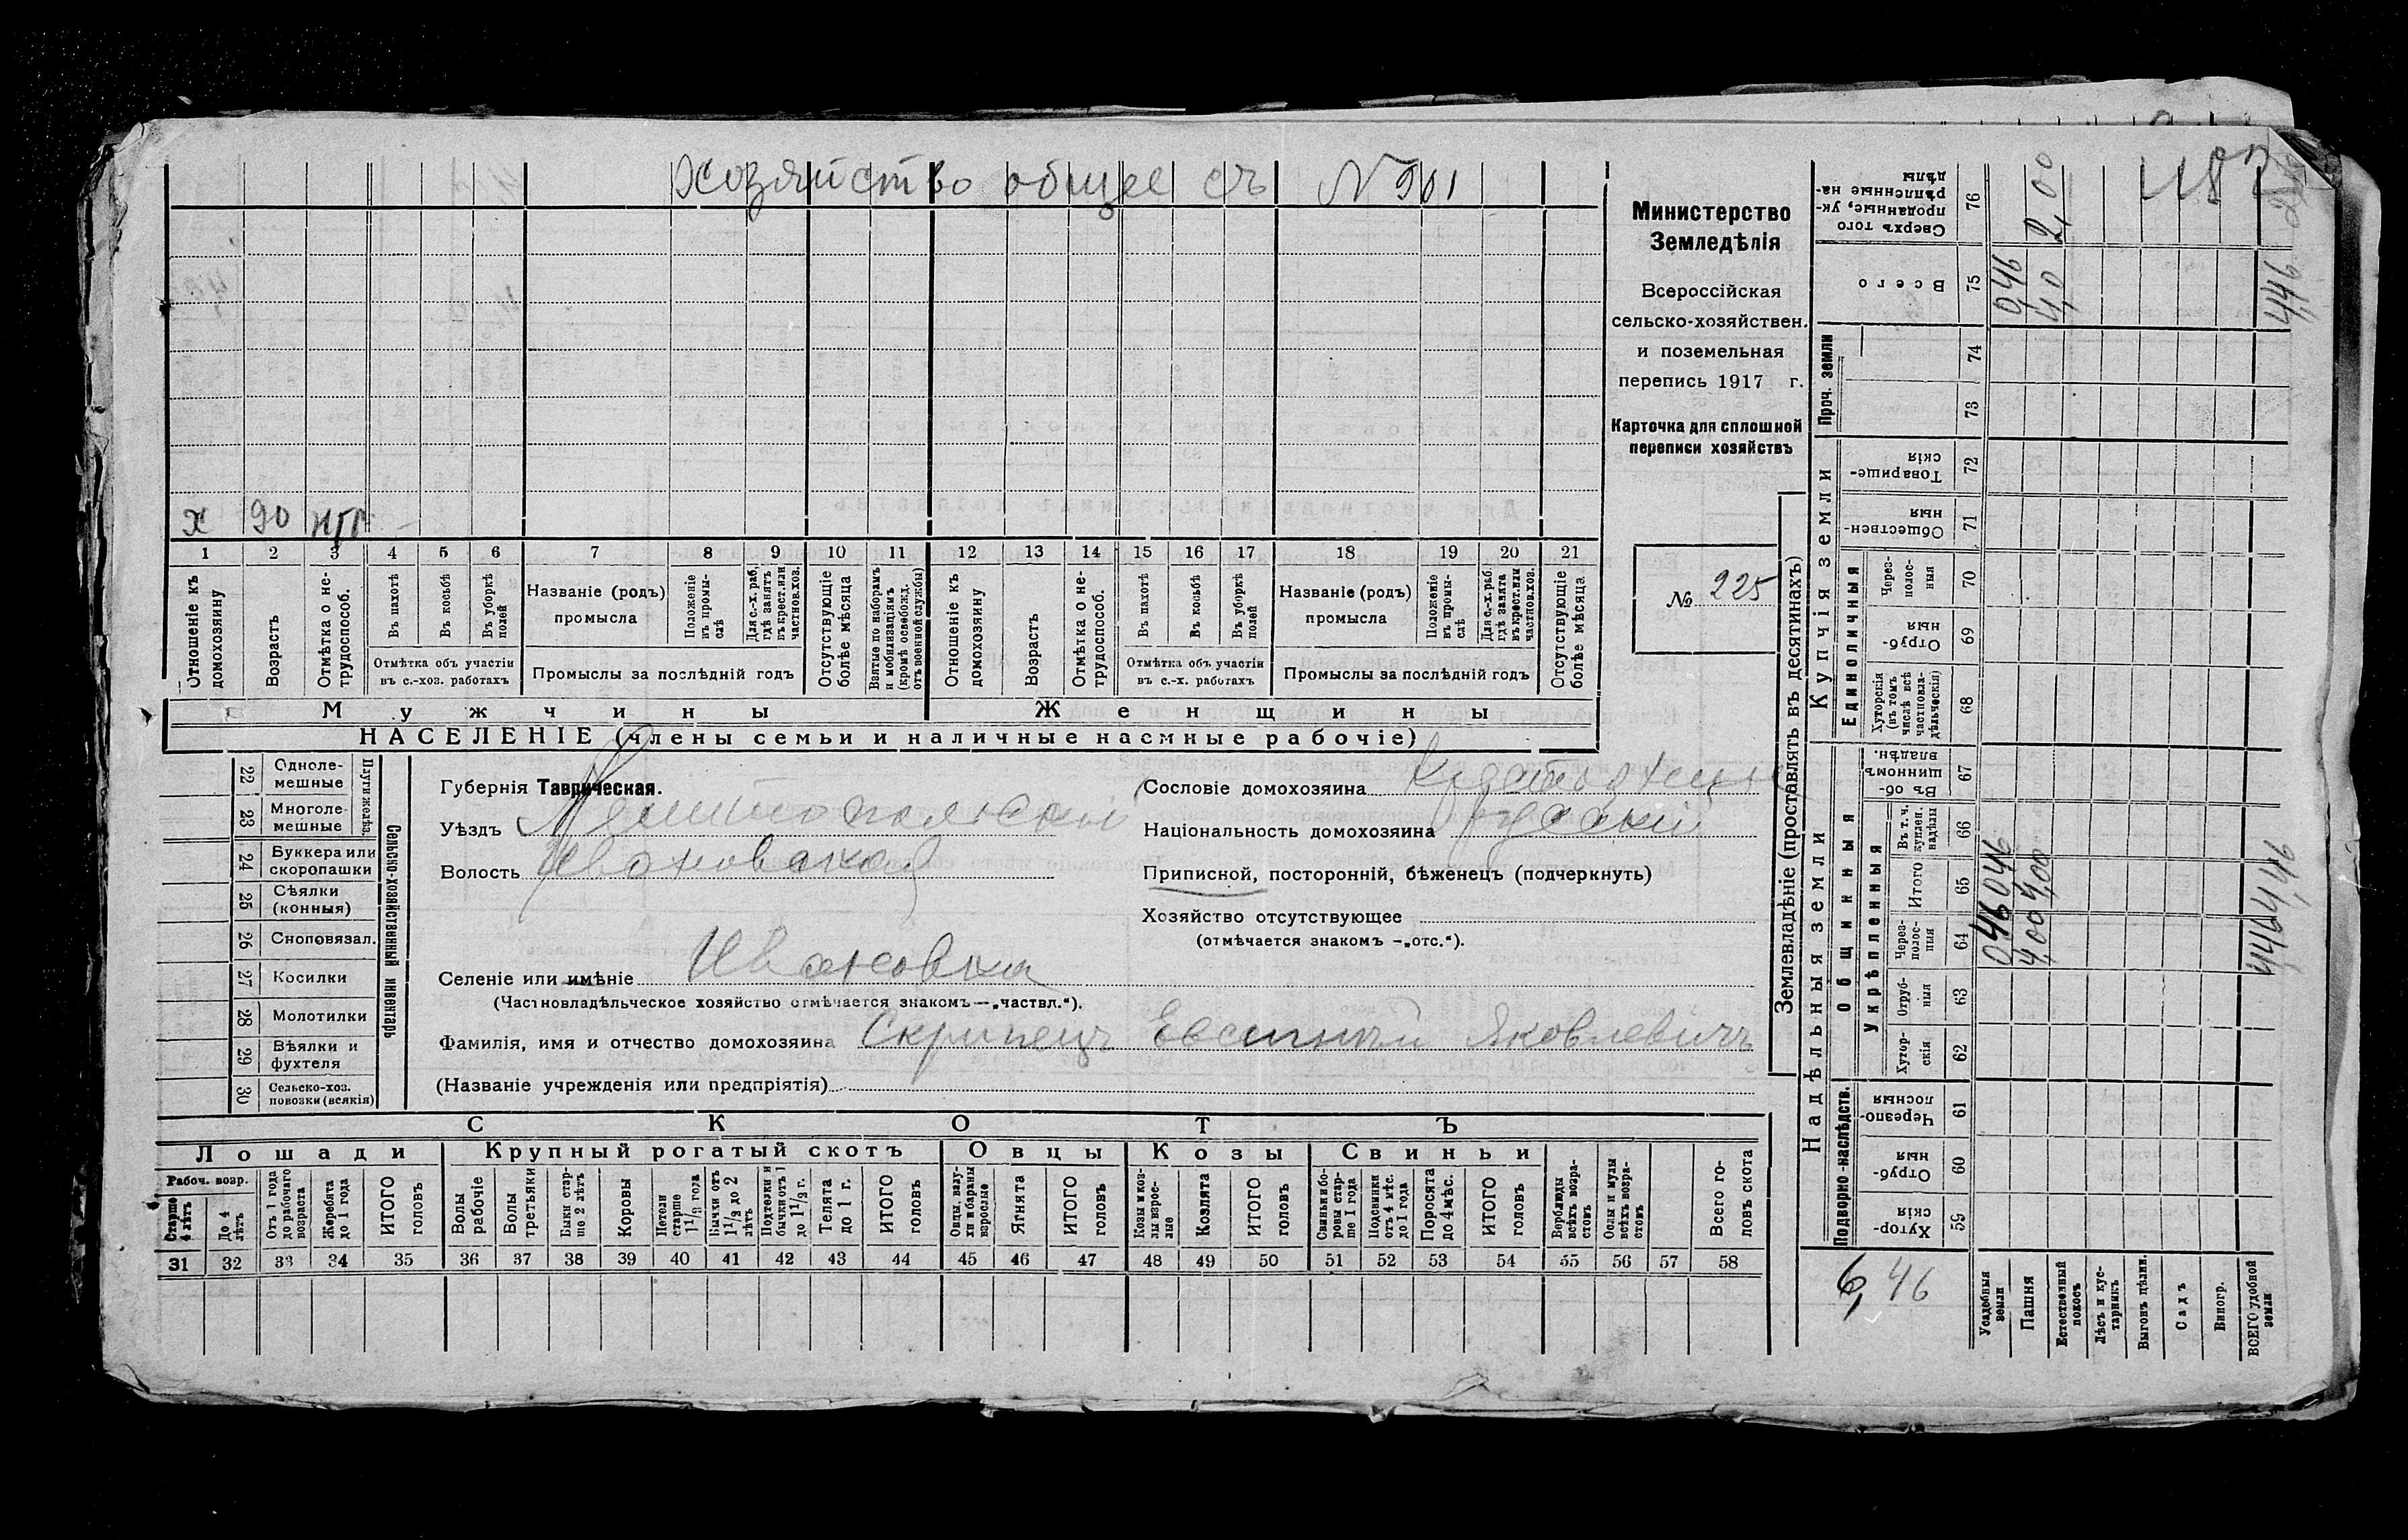 Хозяйство общее съ N 901
х 90 н/р
1 2 3 4 5 6 7 8 9 10 11 12 13 14 15 16 17 18 19 20 21
Отношеніе къ домохозяину
Возрастъ
Отмѣтка о нетрудоспособ.
Въ пахотѣ
Въ косьбѣ
Въ уборкѣ полей
Отмѣтка объ участіи
въ с.-хоз. работахъ
Названіе (родъ)
промысла
Положеніе въ промыслѣ
Для с.-х. раб, гдѣ занятъ въ крест. или частнов. хоз.
Промыслы за послѣдній годъ
Отсутствующіе болѣе мѣсяца
Взятые по наборамъ и мобилизаціямъ (кромѣ освобожд. отъ военной службы)
Отношеніе къ домохозяину
Возрастъ
Отмѣтка о нетрудоспособ.
Въ пахотѣ
Въ косьбѣ
Въ уборкѣ полей
Отмѣтка объ участіи
въ с.-х. работахъ
Названіе (родъ)
промысла
Положеніе въ промыслѣ
Для с.-х. раб. гдѣ занята въ крест. или частнов. хоз.
Промыслы за послѣдній годъ
Отсутствующіе болѣе мѣсяца
Мужчины
Женщины
НАСЕЛЕНІЕ (члены семьи и наличные наемные рабочіе)
Министерство
Земледѣлія
Всероссійская
сельско-хозяйствен.
и поземельная
перепись 1917 г.
Карточка для сплошной
переписи хозяйствъ
№ 225
22 Однолемешные
23 Многолемешные
Плуги желѣз.
24 Буккера или скоропашки
25 Сѣялки (конныя)
26 Сноповязал.
27 Косилки
28 Молотилки
29 Вѣялки и фухтеля
30 Сельско-хоз. повозки (всякія)
Сельско-хозяйственный инвентарь
Губернія Таврическая.
Уѣздъ Мелитопольскій
Волость Ивановская
Селеніе или имѣніе Ивановка
(Частновладѣльческое хозяйство отмѣчается знакомъ—„частвл.“).
Фамилія, имя и отчество домохозяина Скрипецъ Евсигній Яковлевичъ
(Названіе учрежденія или предпріятія)
Сословіе домохозяина
Національность домохозяина Русскій
Приписной, посторонній, бѣженецъ (подчеркнуть)
Хозяйство отсутствующее
(отмѣчается знакомъ —„отс.“).
СКОТЪ
Лошади
Крупный рогатый скотъ
Овцы
Козы
Свиньи
Рабоч. возр.
Старше 4 лѣтъ
До 4 лѣтъ
Отъ 1 года до рабочаго возраста
Жеребята до 1 года
ИТОГО головъ
Волы рабочіе
Волы третьяки
Быки старше 2 лѣтъ
Коровы
Нетели старше 1 1/2 года
Бычки отъ 1 1/2 до 2 лѣтъ
Подтелки и бычки отъ 1 до 1 1/2 г.
Телята до 1 г.
ИТОГО головъ
Овцы, валухи и бараны взрослые
Ягнята
ИТОГО головъ
Козы и козлы взрослые
Козлята
ИТОГО головъ
Свиньи и боровы старше 1 года
Подсвинки отъ 4 мѣс. до 1 года
Поросята до 4 мѣс.
ИТОГО головъ
Верблюды всѣхъ возрастовъ
Ослы и мулы всѣхъ возрастовъ
Всего головъ скота
31 32 33 34 35 36 37 38 39 40 41 42 43 44 45 46 47 48 49 50 51 52 53 54 55 56 57 58
Землевладѣніе (проставлять въ десятинахъ)
Надѣльныя земли
Купчія земли
Проч. земли
Подворно-наслѣдств.
Общинныя
Укрѣпленныя
Единоличныя
Сверхъ того проданные, укрѣпленные надѣлы 76 2,00
Всего 75 0,46 4,0 4,46
74
73
Товарищескія 72
Общественныя 71
Черезполосныя 70
Отрубныя 69
Хуторскія (въ томъ числѣ всѣ частновладѣльческія) 68
Въ общинномъ владѣн. 67
Въ т. ч. куплен. надѣлы 66
Итого 65 0,46 4,00 4,46
Черезполосныя 64 0,46 4,00 4,46
Отрубныя 63
Хуторскія 62
Черезполосныя 61
Отрубныя 60
Хуторскія 59
6,46
Усадебныя земли
Пашня
Естественный покосъ
Лѣсъ и кустарникъ
Выгонъ дѣлин.
Садъ
Виногр.
ВСЕГО удобной земли